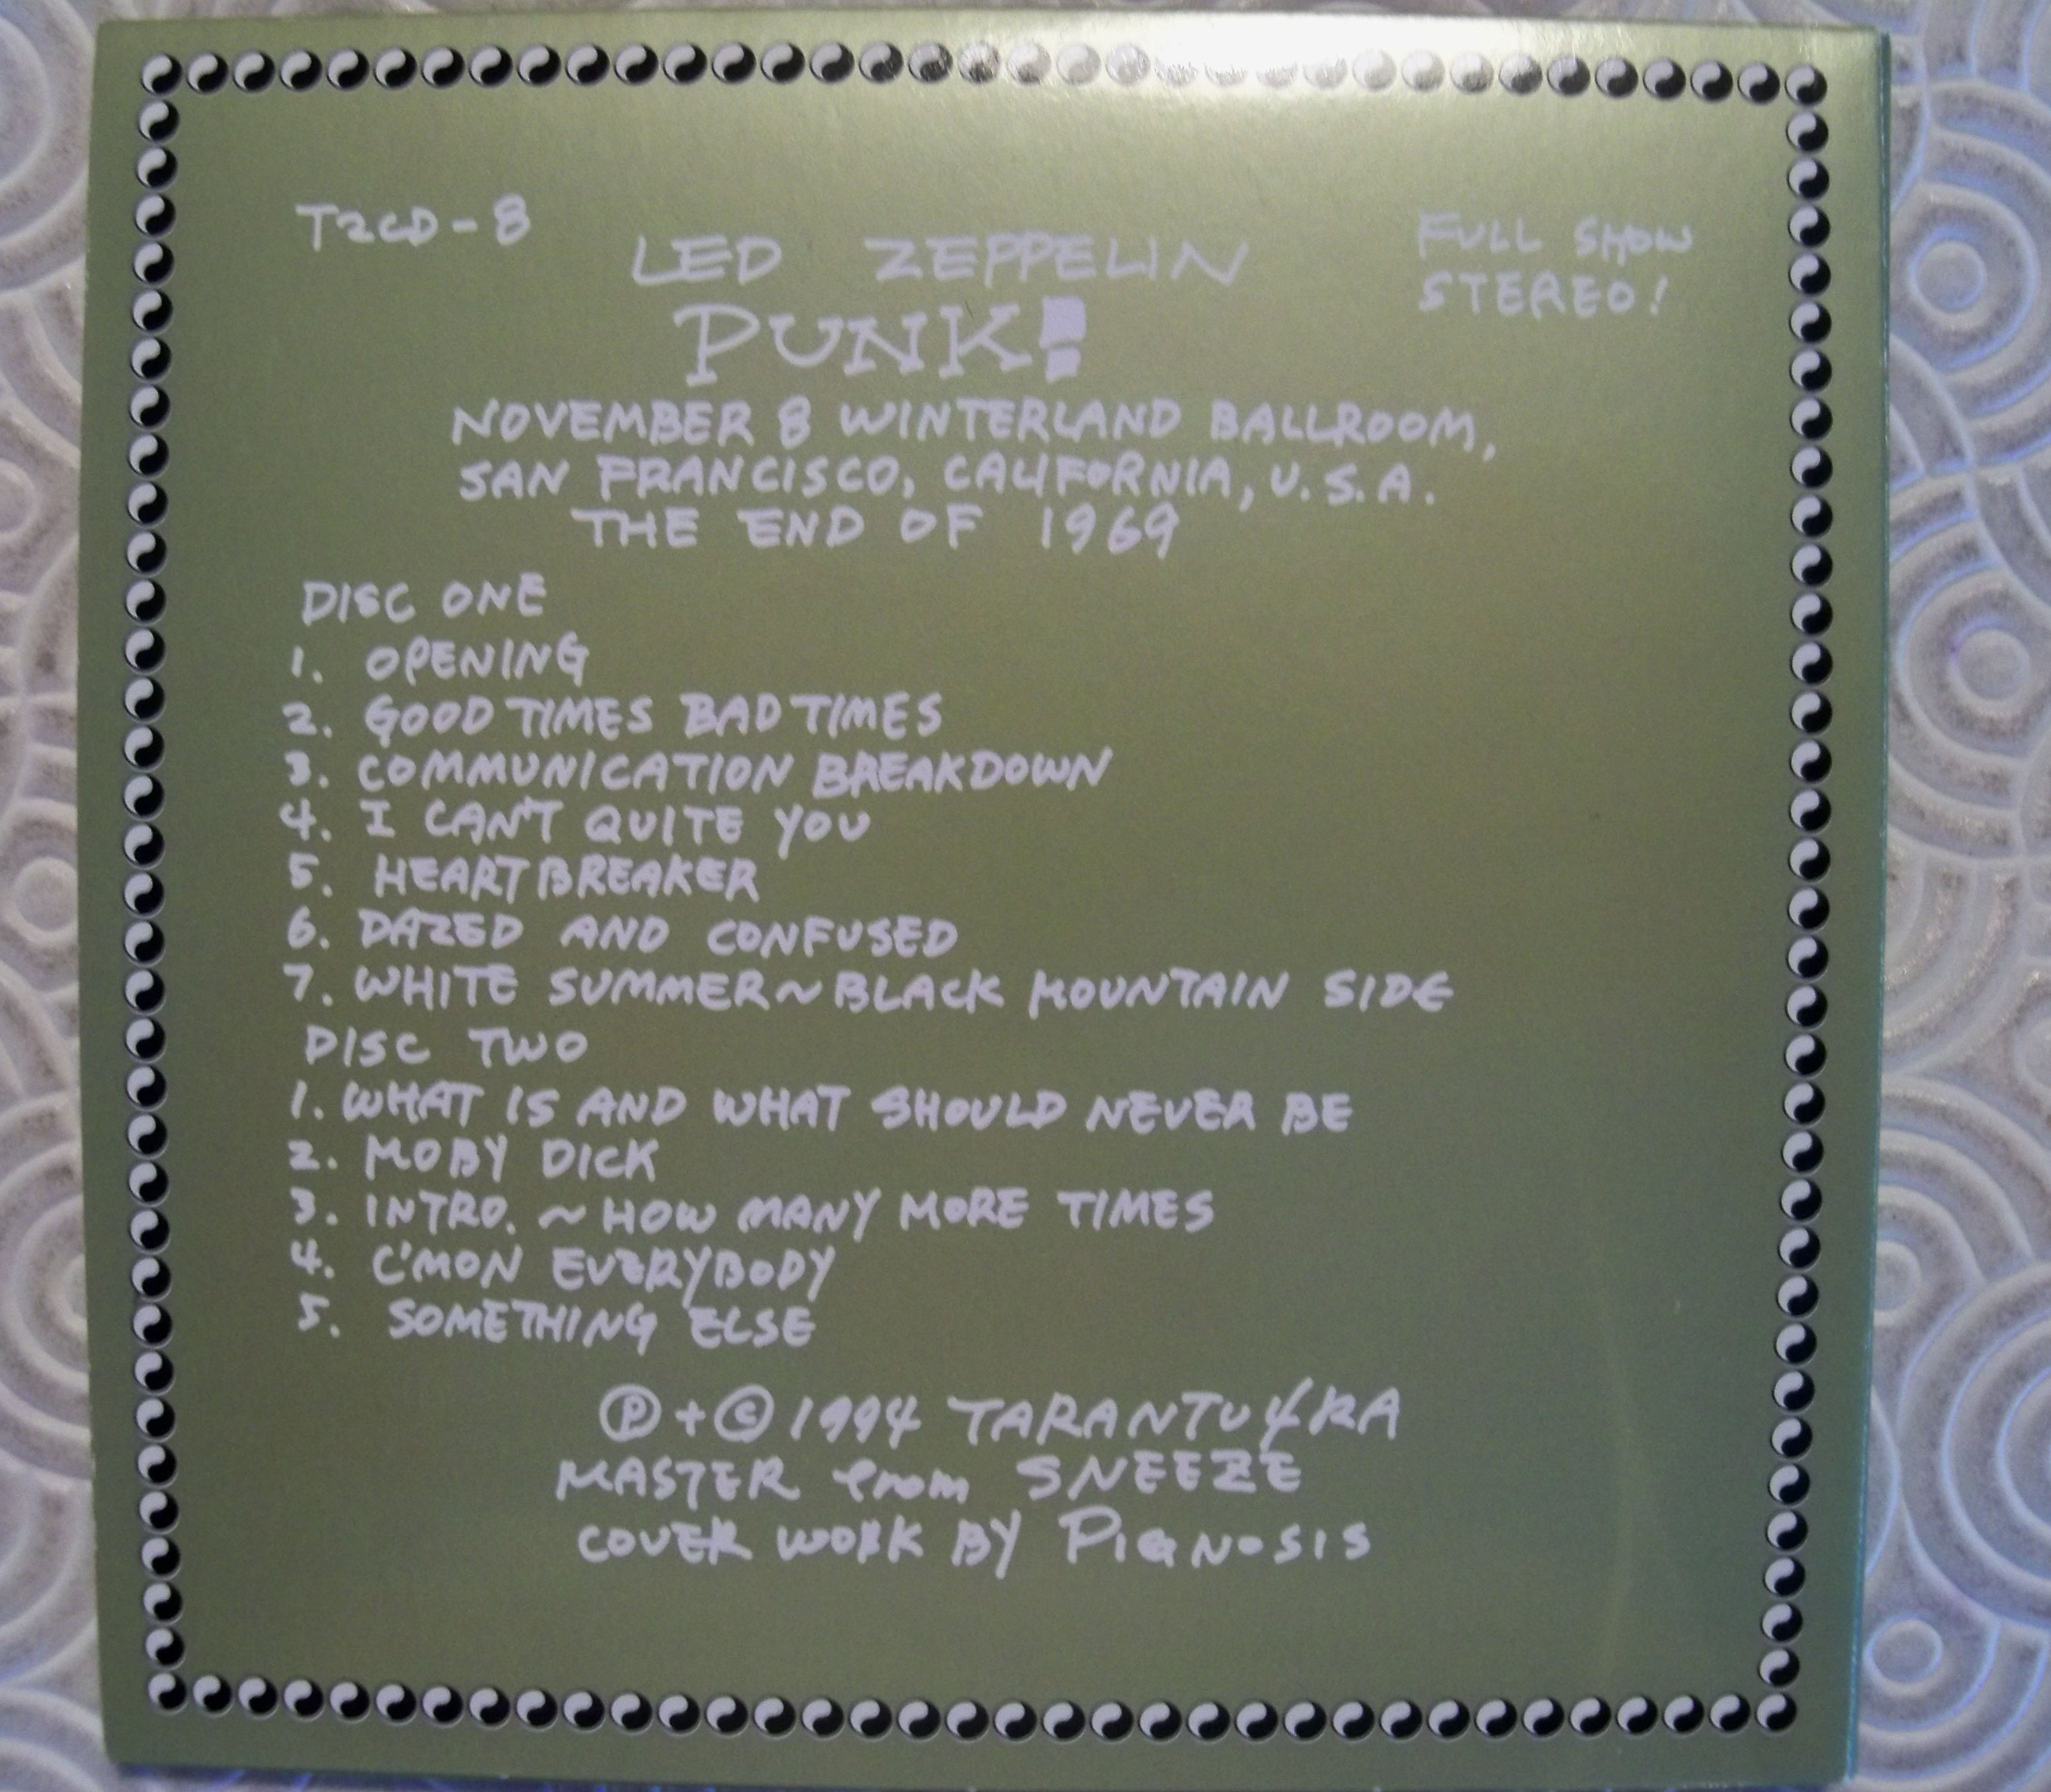 T2CD-8
LED ZEPPELIN
PUNK!
FULL SHOW
STEREO!
NOVEMBER 8 WINTERLAND BALLROOM,
SAN FRANCISCO, CALIFORNIA, U.S.A.
THE END OF 1969
DISC ONE
1. OPENING
2. GOOD TIMES BAD TIMES
3. COMMUNICATION BREAKDOWN
4. I CAN'T QUITE YOU
5. HEARTBREAKER
6. DAZED AND CONFUSED
7. WHITE SUMMER~BLACK MOUNTAIN SIDE
DISC TWO
1. WHAT IS AND WHAT SHOULD NEVER BE
2. MOBY DICK
3. INTRO. ~ HOW MANY MORE TIMES
4. C'MON EVERYBODY
5. SOMETHING ELSE
Ⓟ+© 1994
MASTER from SNEEZE
COVER WORK BY PIGNOSIS